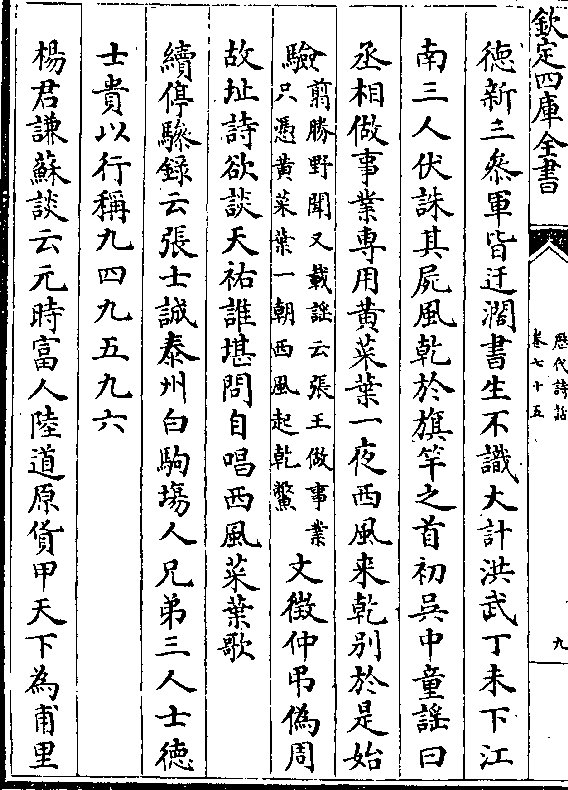 欽定四庫全書
歷代詩話
卷七十五
九
德新三叅軍皆迂濶書生不識大計洪武丁未下江
南三人伏誅其屍風乾於旗竿之首初吳中童謡曰
丞相做事業專用黄菜葉一夜西風来乾别於是始
驗
翦勝野聞又載謡云張王做事業
只憑黄菜葉一朝西風起乾鱉
文徴仲弔偽周
故址詩欲談天祐誰堪問自唱西風菜葉歌
續停驂録云張士誠泰州白駒塲人兄弟三人士德
士貴以行稱九四九五九六
楊君謙蘇談云元時富人陸道原貲甲天下為甫里